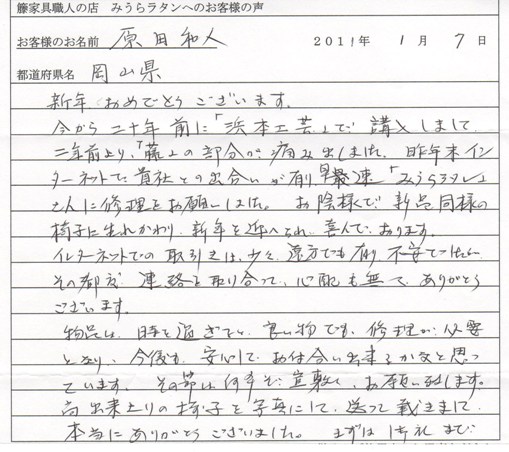 籐家具職人の店 みうらラタンへのお客様の声
お客様のお名前 原田和人 2011年 1月 7日
都道府県名 岡山県
新年 おめでとうございます。
今から二十年前に「浜本工芸」で 講入しまして
二年前より、「籐」の部分が 痛み出しました。昨年末イン
ターネットで 貴社との出合いが有り、早速「みうらラタン」
さんに修理をお願いしました。 お陰様で 新品同様の
椅子に生れかわり、新年を迎へられ、喜んで、おります。
インターネットでの 取引きは、少々、遠方でも有り 不安でしたが
その都度 連絡を取り合って、心配も無く、ありがとう
ございます。
物品は、時を過ぎると、良い物でも、修理が、必要
となり、今後も、安心して、お付合い出来るかなと思っ
ています。 その節は何卒で 宜敷く、お願い致します。
尚 出来上りの椅子を写真にて、送って戴きまして
本当にありがとうございました。 まずは御礼まで